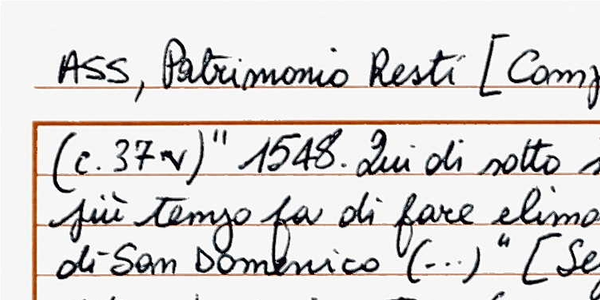 ASS, Patrimonio Resti [Comp
(c. 37v)" 1548. Qui di sotto
più tempo fa di fare elimo
di San Domenico (...)" [Se